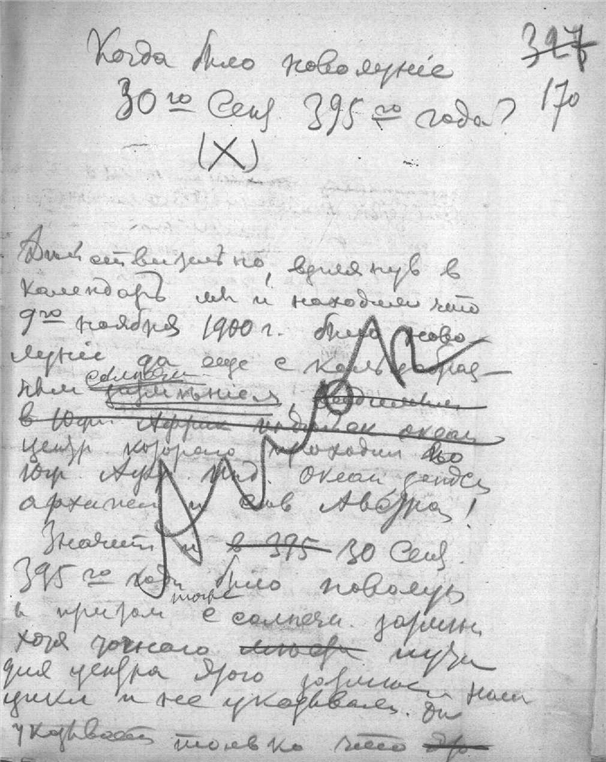 327
170
Когда было новолуніе
30го Сент 395го года?
(X)
Действительно, взглянув в
календарь мы и находим что
9го ноября 1900 г. было ново
луніе да еще с кольцеобраз-
ным солнечн затменіем,
в Южн Африк Индійск океан
центр которого проходил по
Южн Афр Инд. океан
архипел и Австра!
Значит и в 395 30 Сент.
395го года было новолун
и притом тоже с солнечн. затмен
хотя точного пути
для центра этого затменія наш
цикл и не указывает. Он
указывает только что